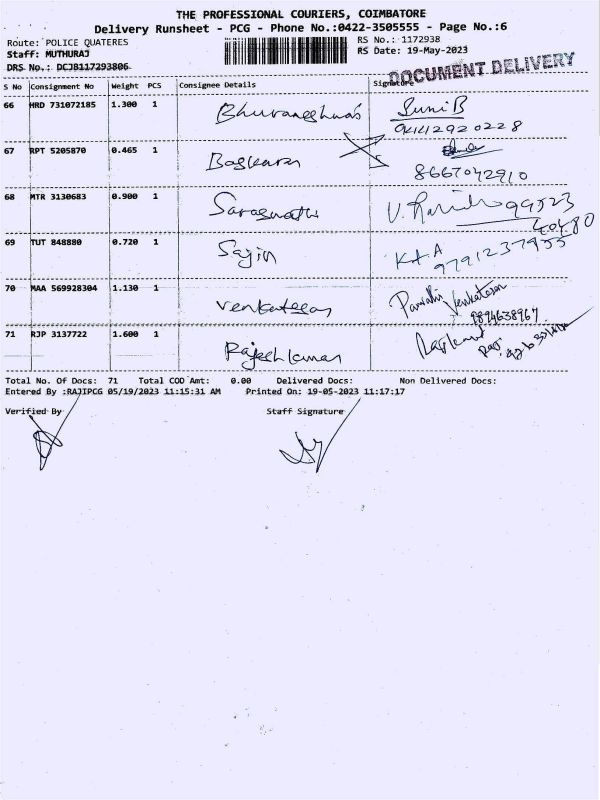 THE PROFESSIONAL COURIERS, COIMBATORE
Delivery Runsheet - PCG - Phone No.:0422-3505555 - Page No.:6
Route: POLICE QUATERES
RS No.: 1172938
Staff: MUTHURAJ
RS Date: 19-May-2023
DRS No.: DCJB117293806
DOCUMENT DELIVERY
S No Consignment No Weight PCS Consignee Details Signature
66 HRD 731072185 1.300 1 Bhuvaneshwari Suni B
67 RPT 5205870 0.465 1 Baskaran
8667042910
68 MTR 3130683 0.900 1 Saraswathi
69 TUT 848880 0.720 1 Sajin
70 MAA 569928304 1.130 1 Venkatesan
9894638967
71 RJP 3137722 1.600 1 Rajeshkumar
Total No. Of Docs: 71 Total COD Amt: 0.00 Delivered Docs: Non Delivered Docs:
Entered By :RAJIPCG 05/19/2023 11:15:31 AM Printed On: 19-05-2023 11:17:17
Verified By Staff Signature